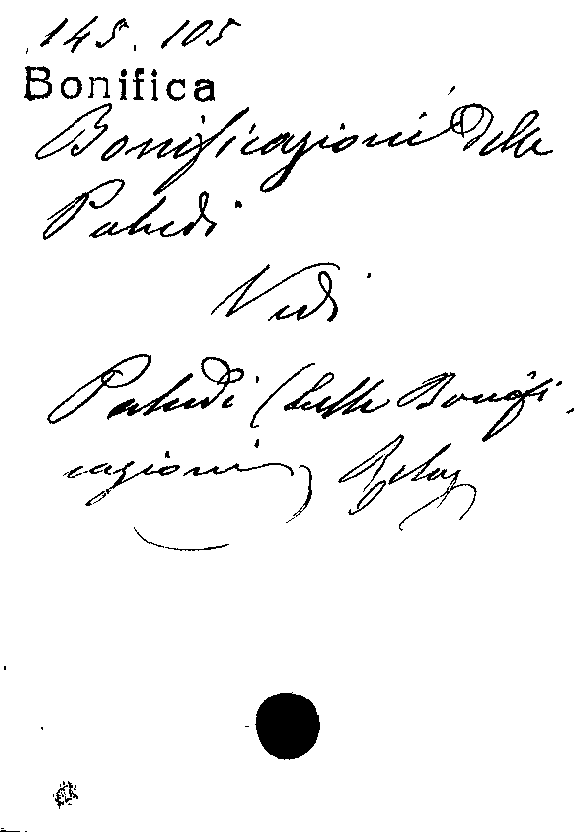 145. 105
Bonifica
Bonificazioni delle
Paludi
Vedi
Paludi (Sulle Bonifi-
cazioni)